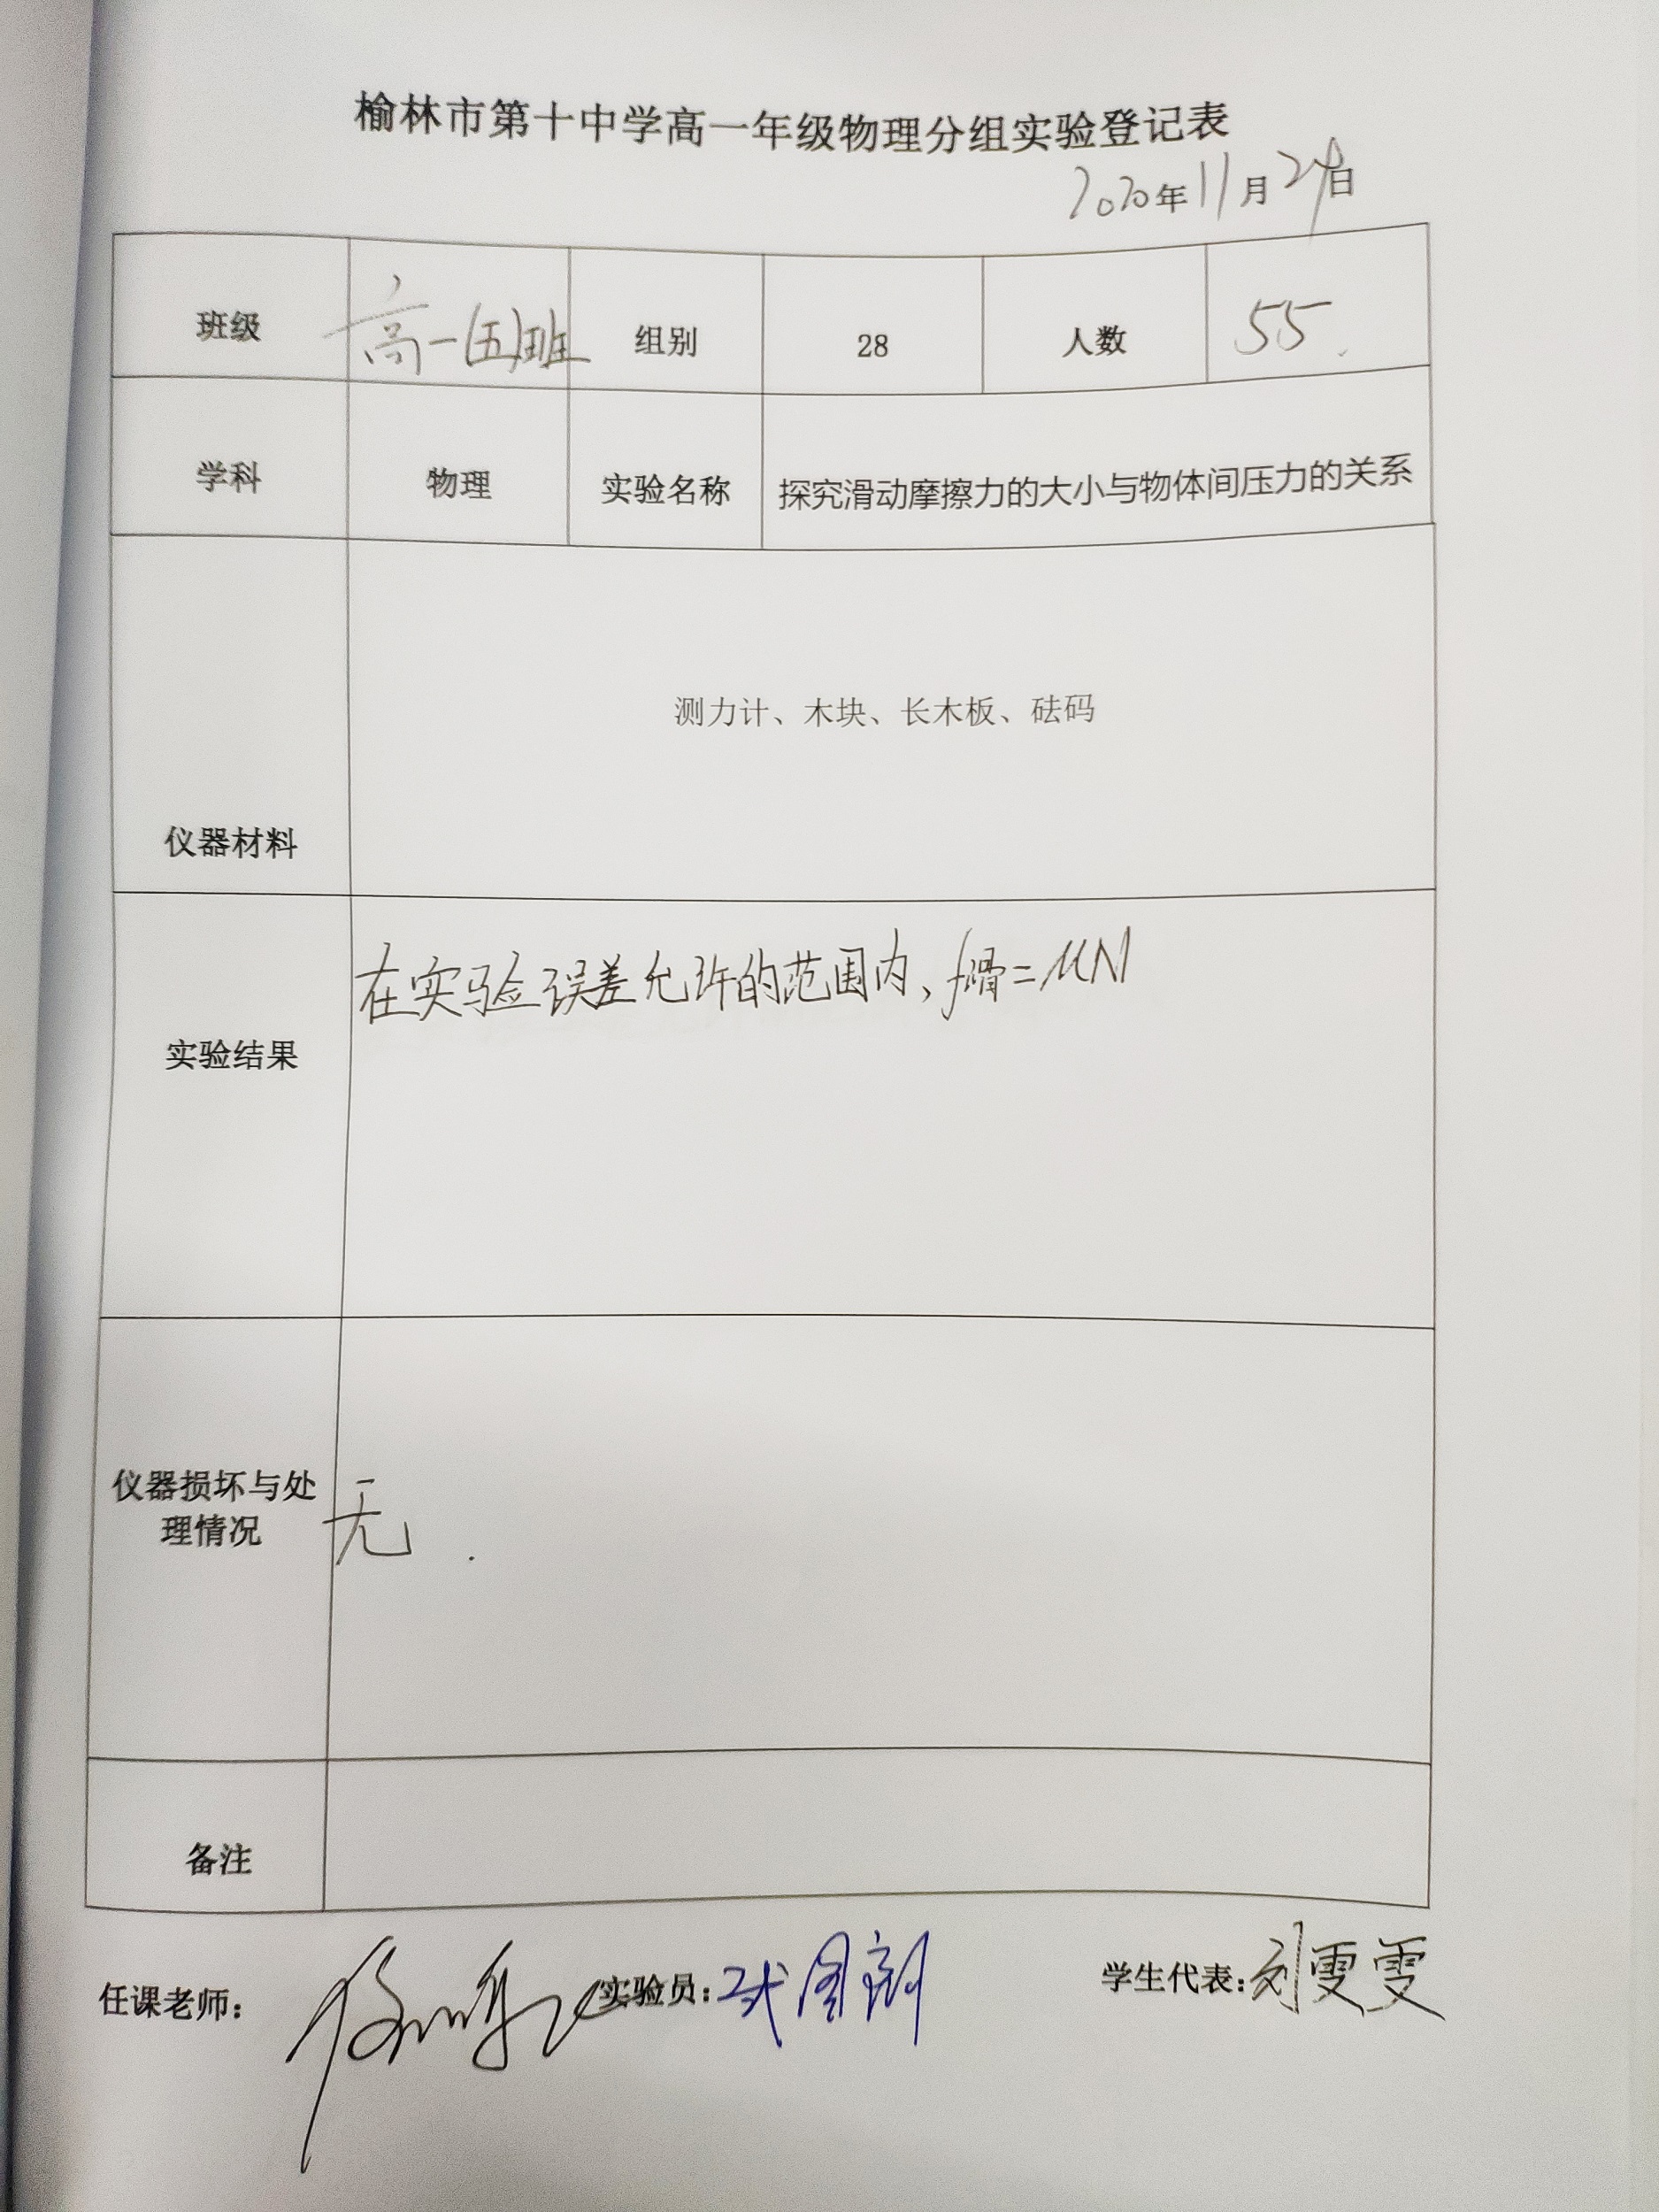 榆林市第十中学高一年级物理分组实验登记表
2020年11月24日
班级 高一(五)班 组别 28 人数 55.
学科 物理 实验名称 探究滑动摩擦力的大小与物体间压力的关系
测力计、木块、长木板、砝码
仪器材料
在实验误差允许的范围内、f滑=μN
实验结果
仪器损坏与处
理情况
无.
备注
任课老师: 实验员: 学生代表:刘雯雯